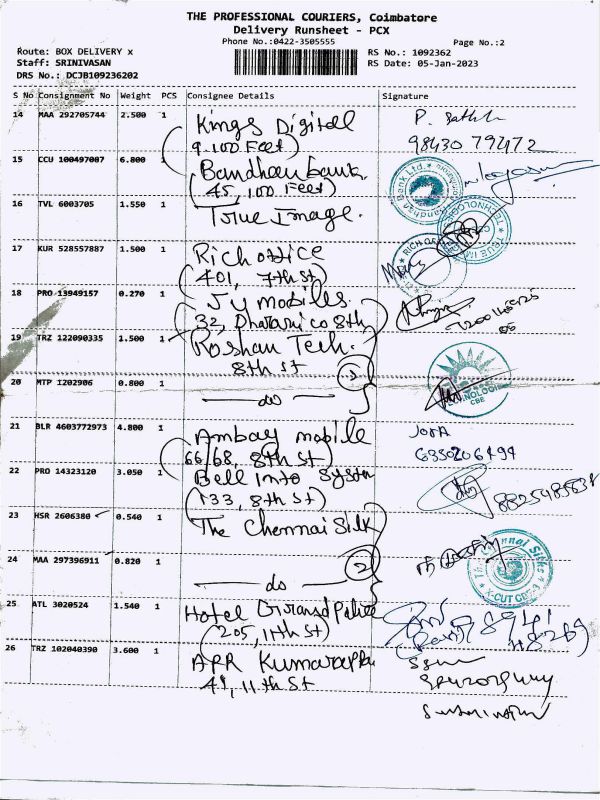 THE PROFESSIONAL COURIERS, Coimbatore
Delivery Runsheet - PCX
Phone No.:0422-3505555
Page No.:2
Route: BOX DELIVERY x
RS No.: 1092362
Staff: SRINIVASAN
RS Date: 05-Jan-2023
DRS No.: DCJB109236202
S No Consignment No Weight PCS Consignee Details Signature
14 MAA 292705744 2.500 1 Kings Digital
9.100 Feet)
98430 79472
15 CCU 100497007 6.800 1 Bandhan bank
(45, 100 Feet)
16 TVL 6003705 1.550 1 True Image.
17 KUR 528557887 1.500 1 Rich office
(401, 7th St)
18 PRO 13949157 0.270 1 Jy mobiles
(32, 8th
19 TRZ 122090335 1.500 1 Roshan Tech.
8th St
20 MTP 1202906 0.800 1 do
CBE
21 BLR 4603772973 4.800 1 Ambay mobile
66/68, 8th St)
22 PRO 14323120 3.050 1 Bell Into System
(133, 8th St)
23 HSR 2606380 0.540 1 The Chennai Silk
24 MAA 297396911 0.820 1 do (2)
X-CUT
25 ATL 3020524 1.540 1 Hotel
(205, 11th St)
26 TRZ 102040390 3.600 1 APR
41, 11th St